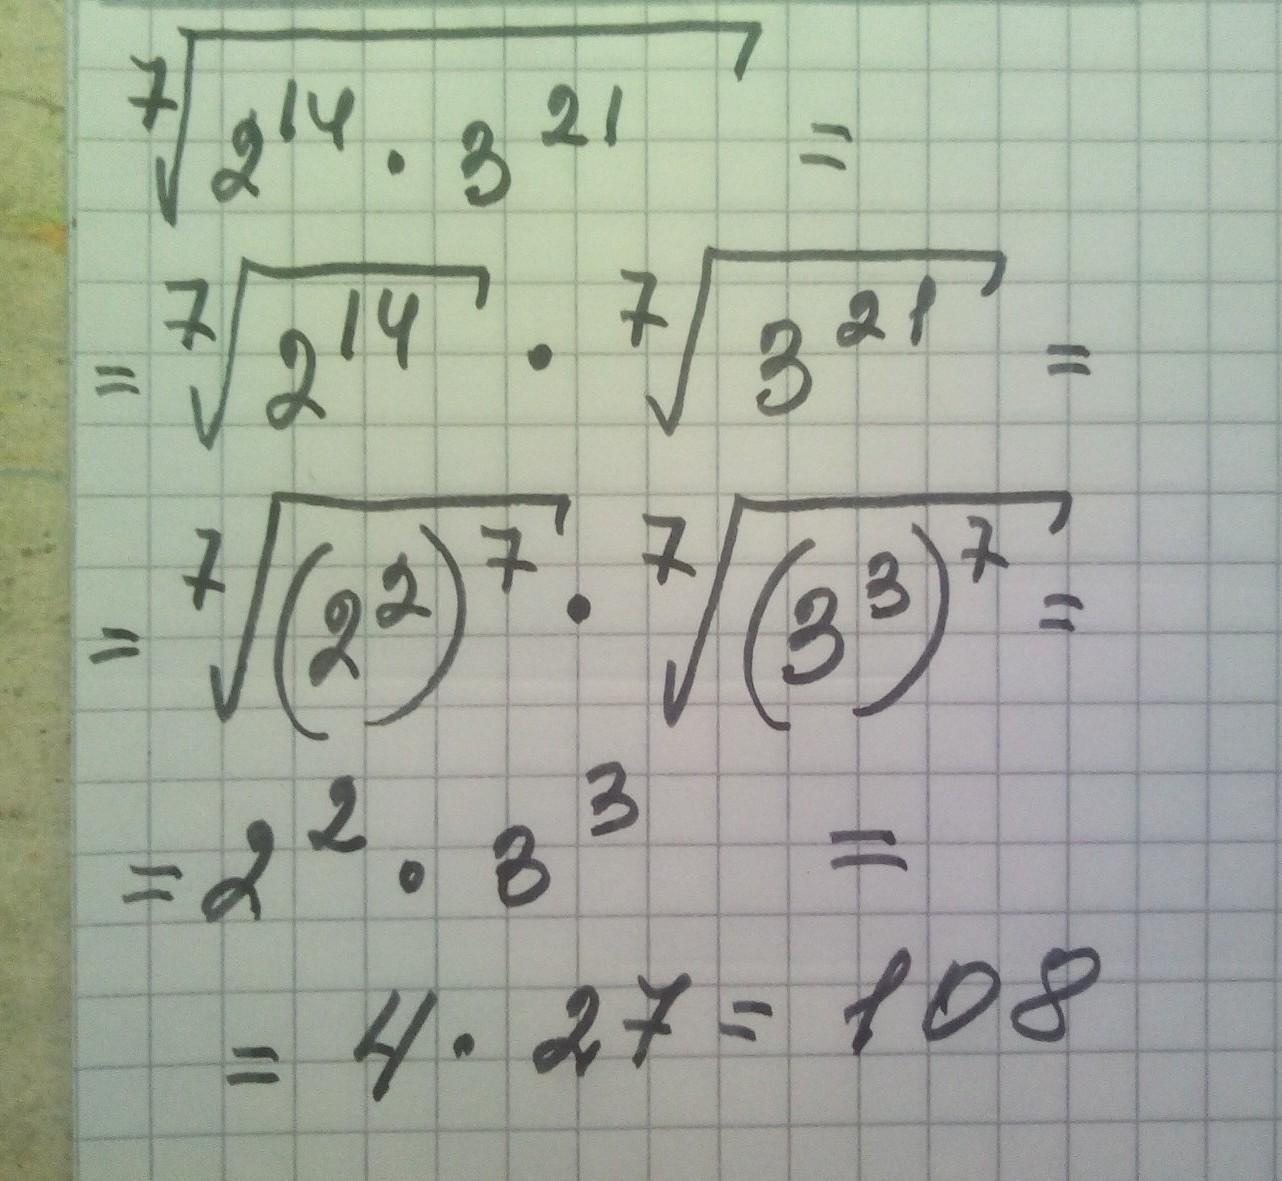 ⁷√(2¹⁴ · 3²¹) =
= ⁷√(2¹⁴) · ⁷√(3²¹) =
= ⁷√((2²)⁷) · ⁷√((3³)⁷) =
= 2² · 3³ =
= 4 · 27 = 108